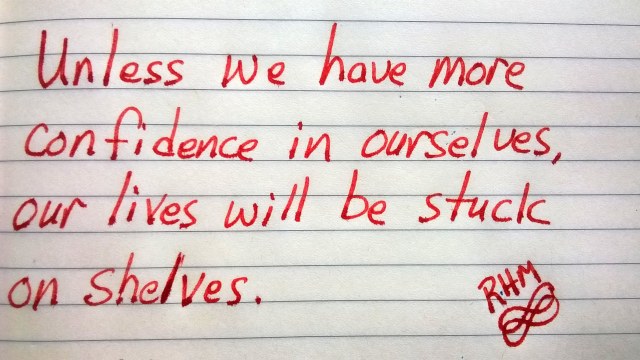 Unless we have more
confidence in ourselves,
our lives will be stuck
on shelves.
R.H.M